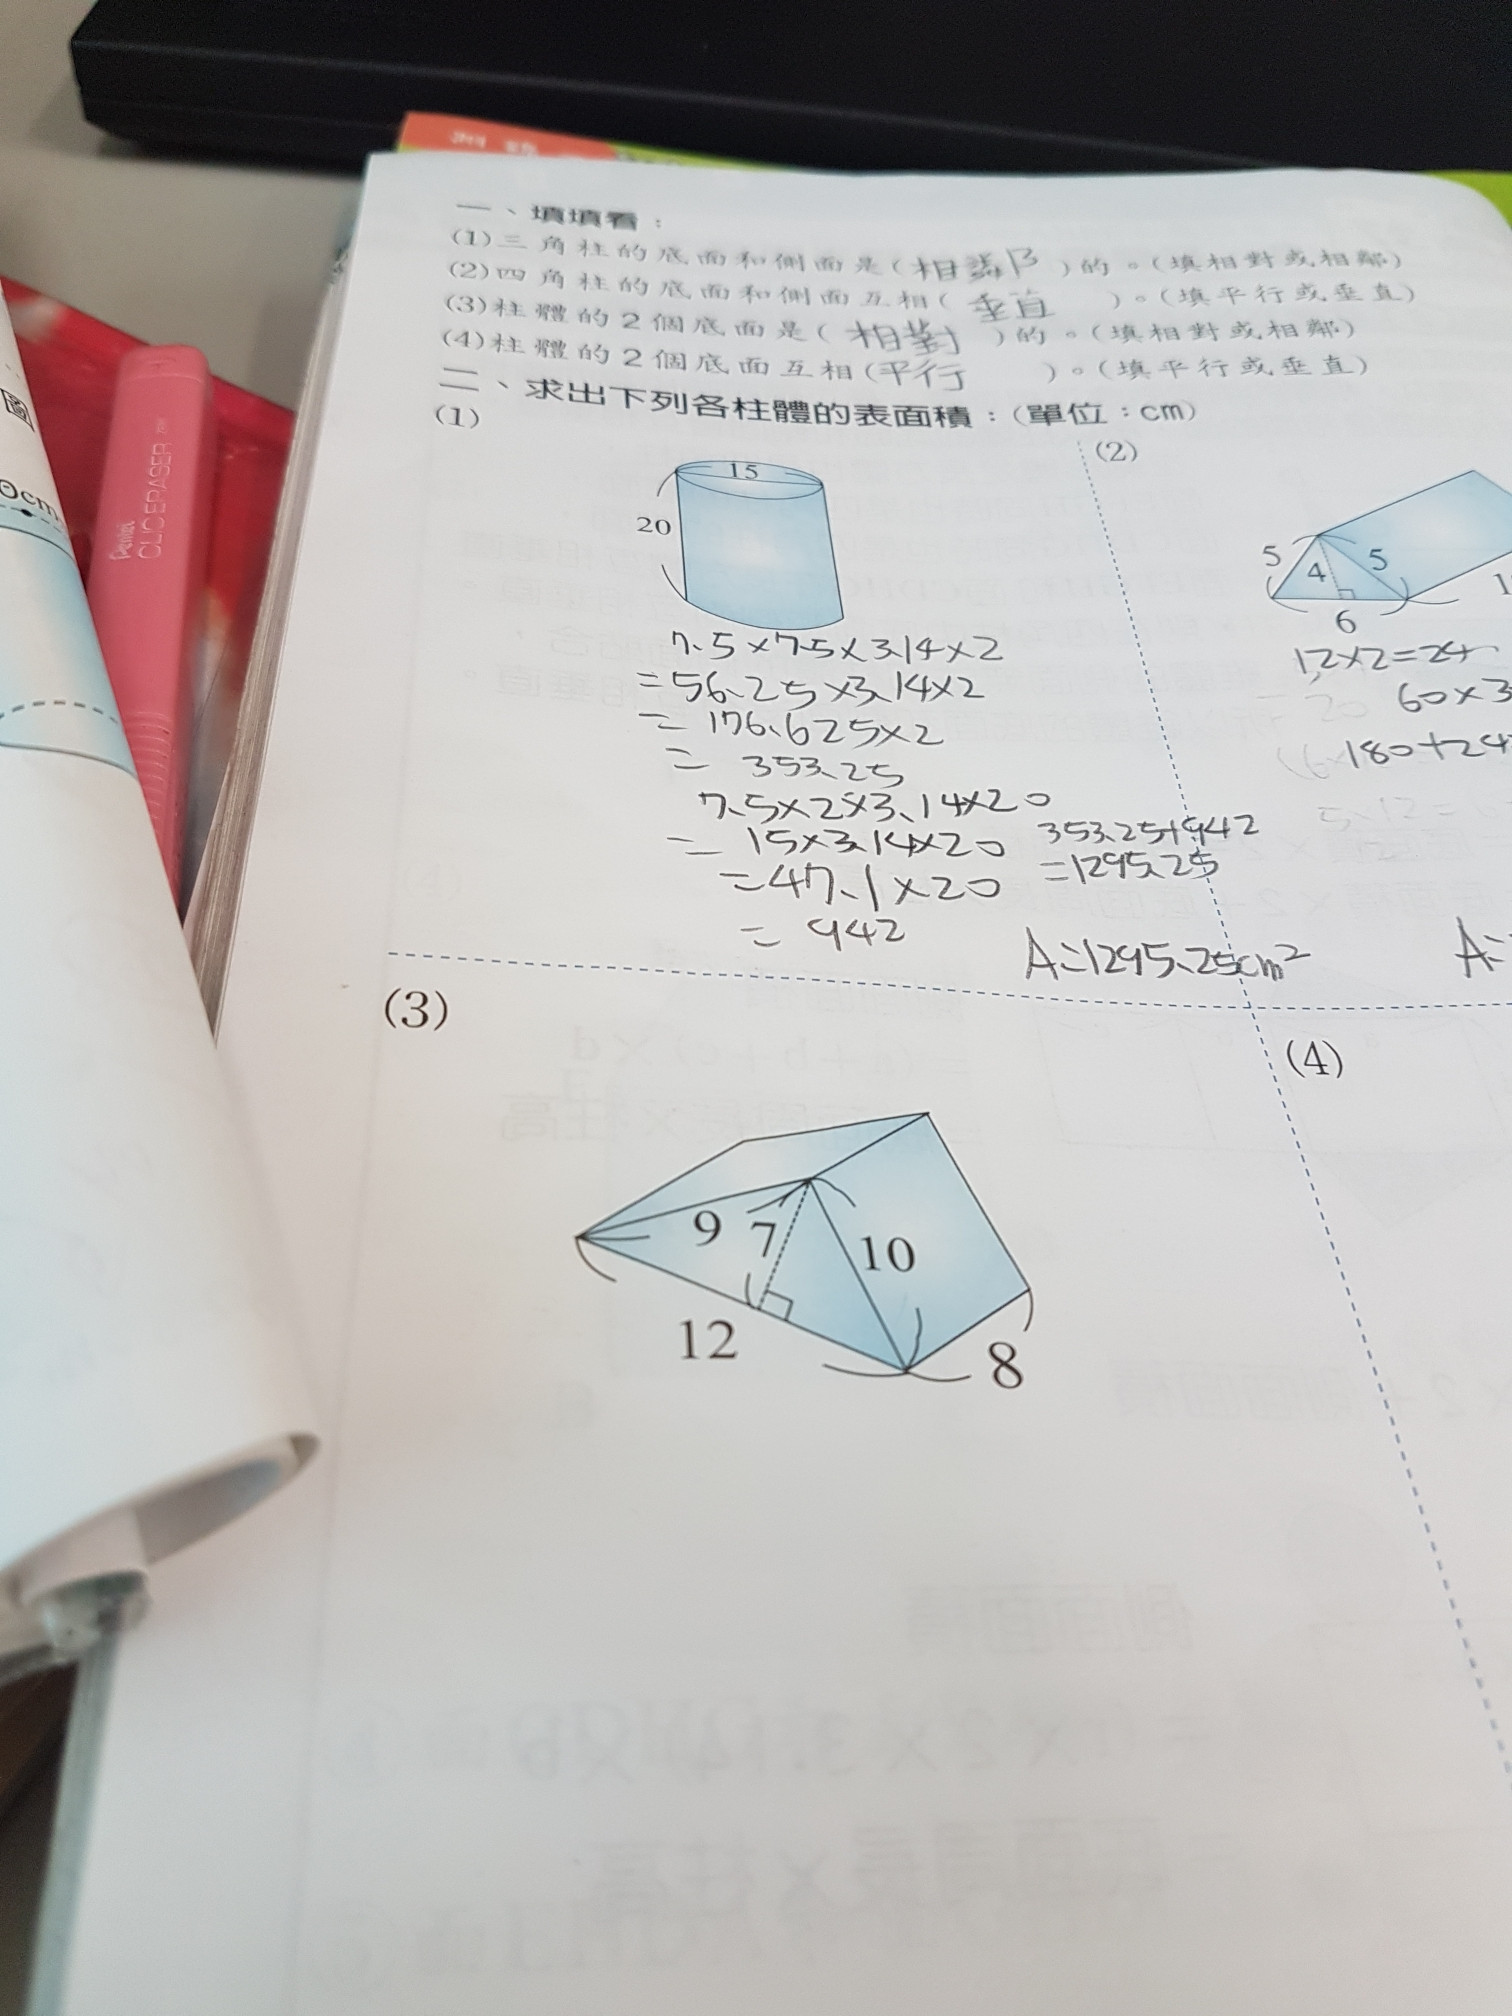 一、填填看：
(1)三角柱的底面和側面是(相鄰)的。(填相對或相鄰)
(2)四角柱的底面和側面互相(垂直)。(填平行或垂直)
(3)柱體的2個底面是(相對)的。(填相對或相鄰)
(4)柱體的2個底面互相(平行)。(填平行或垂直)
二、求出下列各柱體的表面積：(單位：cm)
(1)
15
20
7.5×7.5×3.14×2
=56.25×3.14×2
=176.625×2
=353.25
7.5×2×3.14×20
=15×3.14×20
=47.1×20
=942
353.25+942
=1295.25
A=1295.25cm²
(2)
5
4
5
6
12×2=24
60×3
180+24
A=
(3)
9
7
10
12
8
(4)
Pentel
CLIC ERASER
0cm